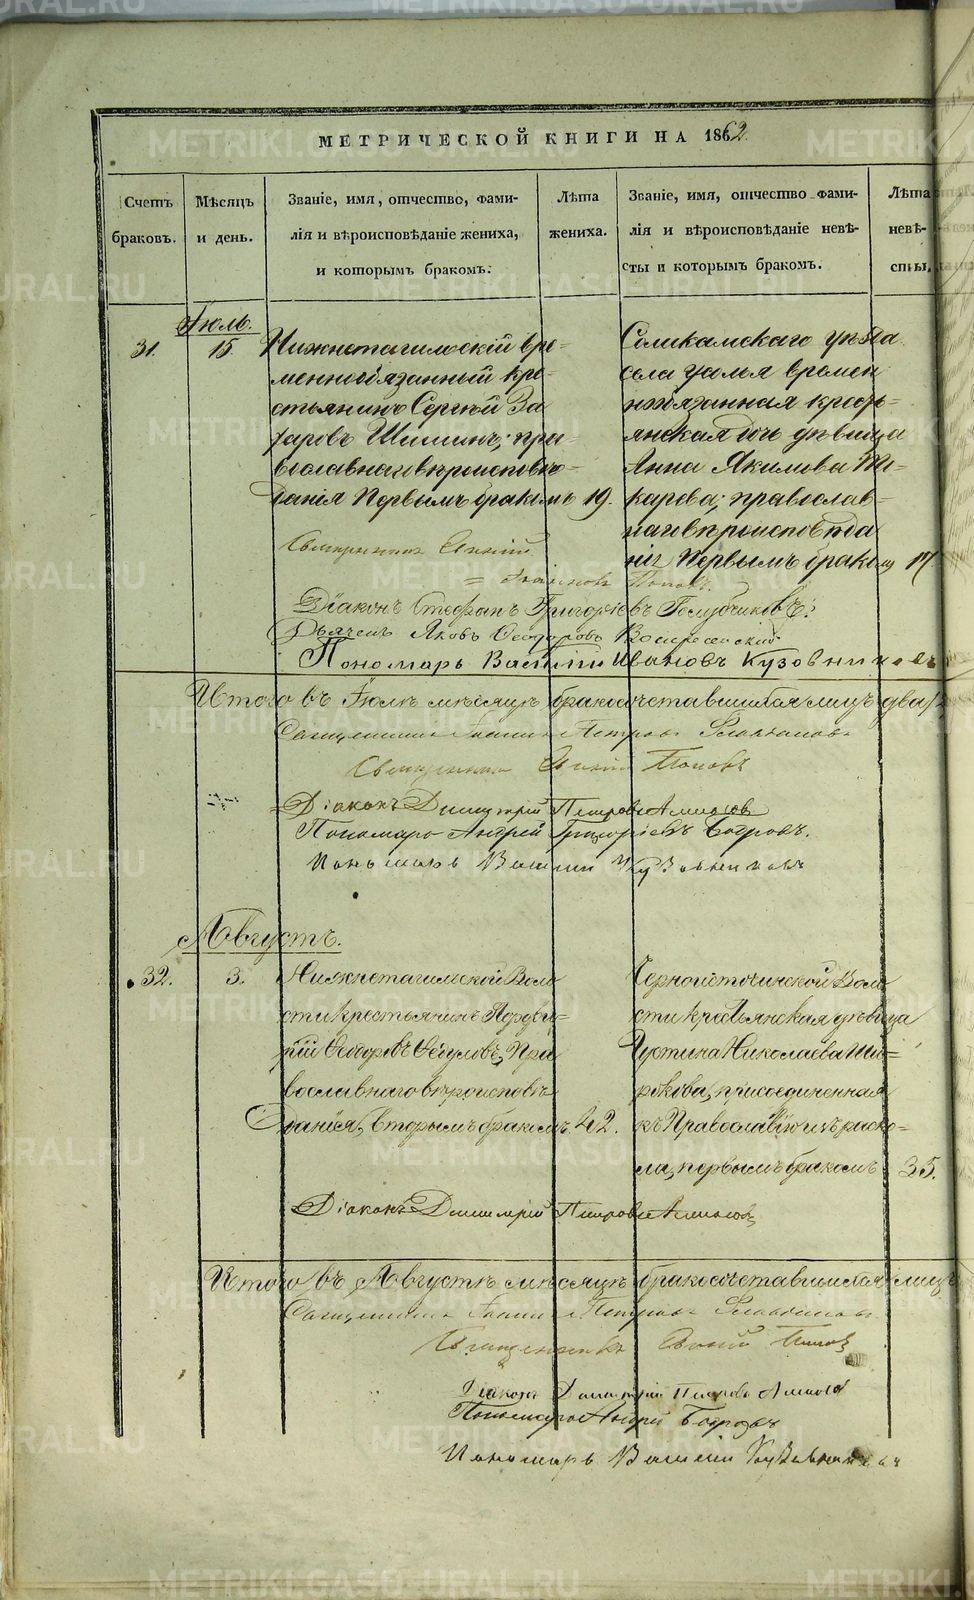 МЕТРИЧЕСКОЙ КНИГИ НА 1862
Счетъ браковъ.
Мѣсяцъ и день.
Званіе, имя, отчество, фами-
лія и вѣроисповѣданіе жениха,
и которымъ бракомъ.
Лѣта жениха.
Званіе, имя, отчество фами-
лія и вѣроисповѣданіе невѣ-
сты и которымъ бракомъ.
Лѣта невѣ- сты.
Іюль.
31.
15
Нижнетагильскій вре-
меннообязанный кре-
стьянинъ Сергѣй За
харовъ Шишинъ; пра-
вославнаго вѣроисповѣ-
данія Первымъ бракомъ
19.
Соликамскаго уѣзда
села Усолья времен
нообязанная кресть-
янская дочь дѣвица
Анна Якимова
карева; православ-
наго вѣроисповѣда
нія Первымъ бракомъ
17
Священникъ
Поповъ.
Діаконъ Стефанъ Григорьевъ Голубчиковъ.
Дьячекъ Яковъ Ѳеодоровъ Воскресенскій
Пономарь Василій Ивановъ Кузовниковъ
Итого въ Іюлѣ мѣсяцѣ бракосочетавшихся лицъ два
Священникъ Іоаннъ Петровъ
Священникъ Поповъ
Діаконъ Димитрій Петровъ Амвросовъ
Пономарь Андрей Григорьевъ Бобровъ.
Пономарь Василій Кузовниковъ
Августъ.
32.
3.
Нижнетагильской Воло
сти крестьянинъ
Ѳеодоровъ Ѳедуловъ, Пра
вославнаго вѣроисповѣ
данія, Вторымъ бракомъ.
42.
Черноисточинской Воло
сти крестьянская дѣвица
Устина Николаева Ши-
рокова, присоединенная
къ Православію изъ раско-
ла, первымъ бракомъ
35.
Діаконъ Димитрій Петровъ Амвросовъ
Итого въ Августѣ мѣсяцѣ бракосочетавшихся лицъ
Священникъ Іоаннъ Петровъ
Священникъ Поповъ
Діаконъ Димитрій Петровъ
Пономарь Андрей Бобровъ
Пономарь Василій Кузовниковъ
METRIKI.GASO-URAL.RU